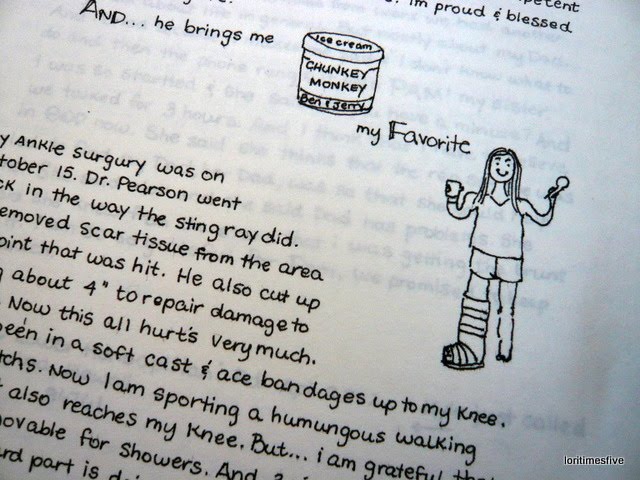 petent
. im proud & blessed
AND... he brings me
ice cream
CHUNKEY
MONKEY
Ben & Jerry
my Favorite
y Ankle surgury was on
tober 15. Dr. Pearson went
ck in the way the sting ray did.
emoved scar tissue from the area
oint that was hit. He also cut up
g about 4" to repair damage to
. Now this all hurt's very much.
been in a soft cast & ace bandages up to my Knee.
tchs. Now I am sporting a humungous walking
t also reaches my Knee. But... i am grateful tha
movable for showers. And
ard part is
loritimesfive